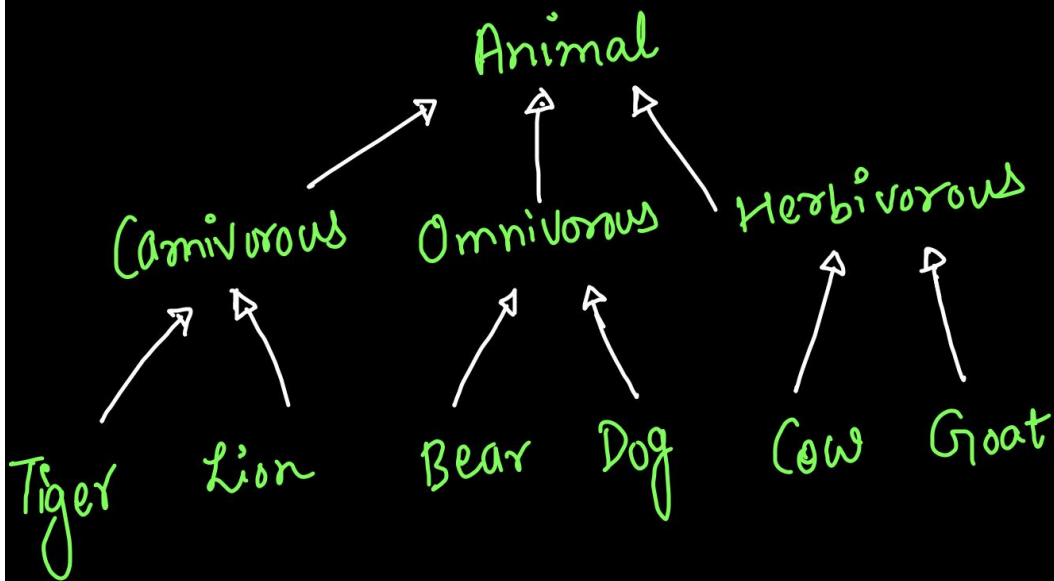 Animal
Carnivorous Omnivorous Herbivorous
Tiger Lion Bear Dog Cow Goat